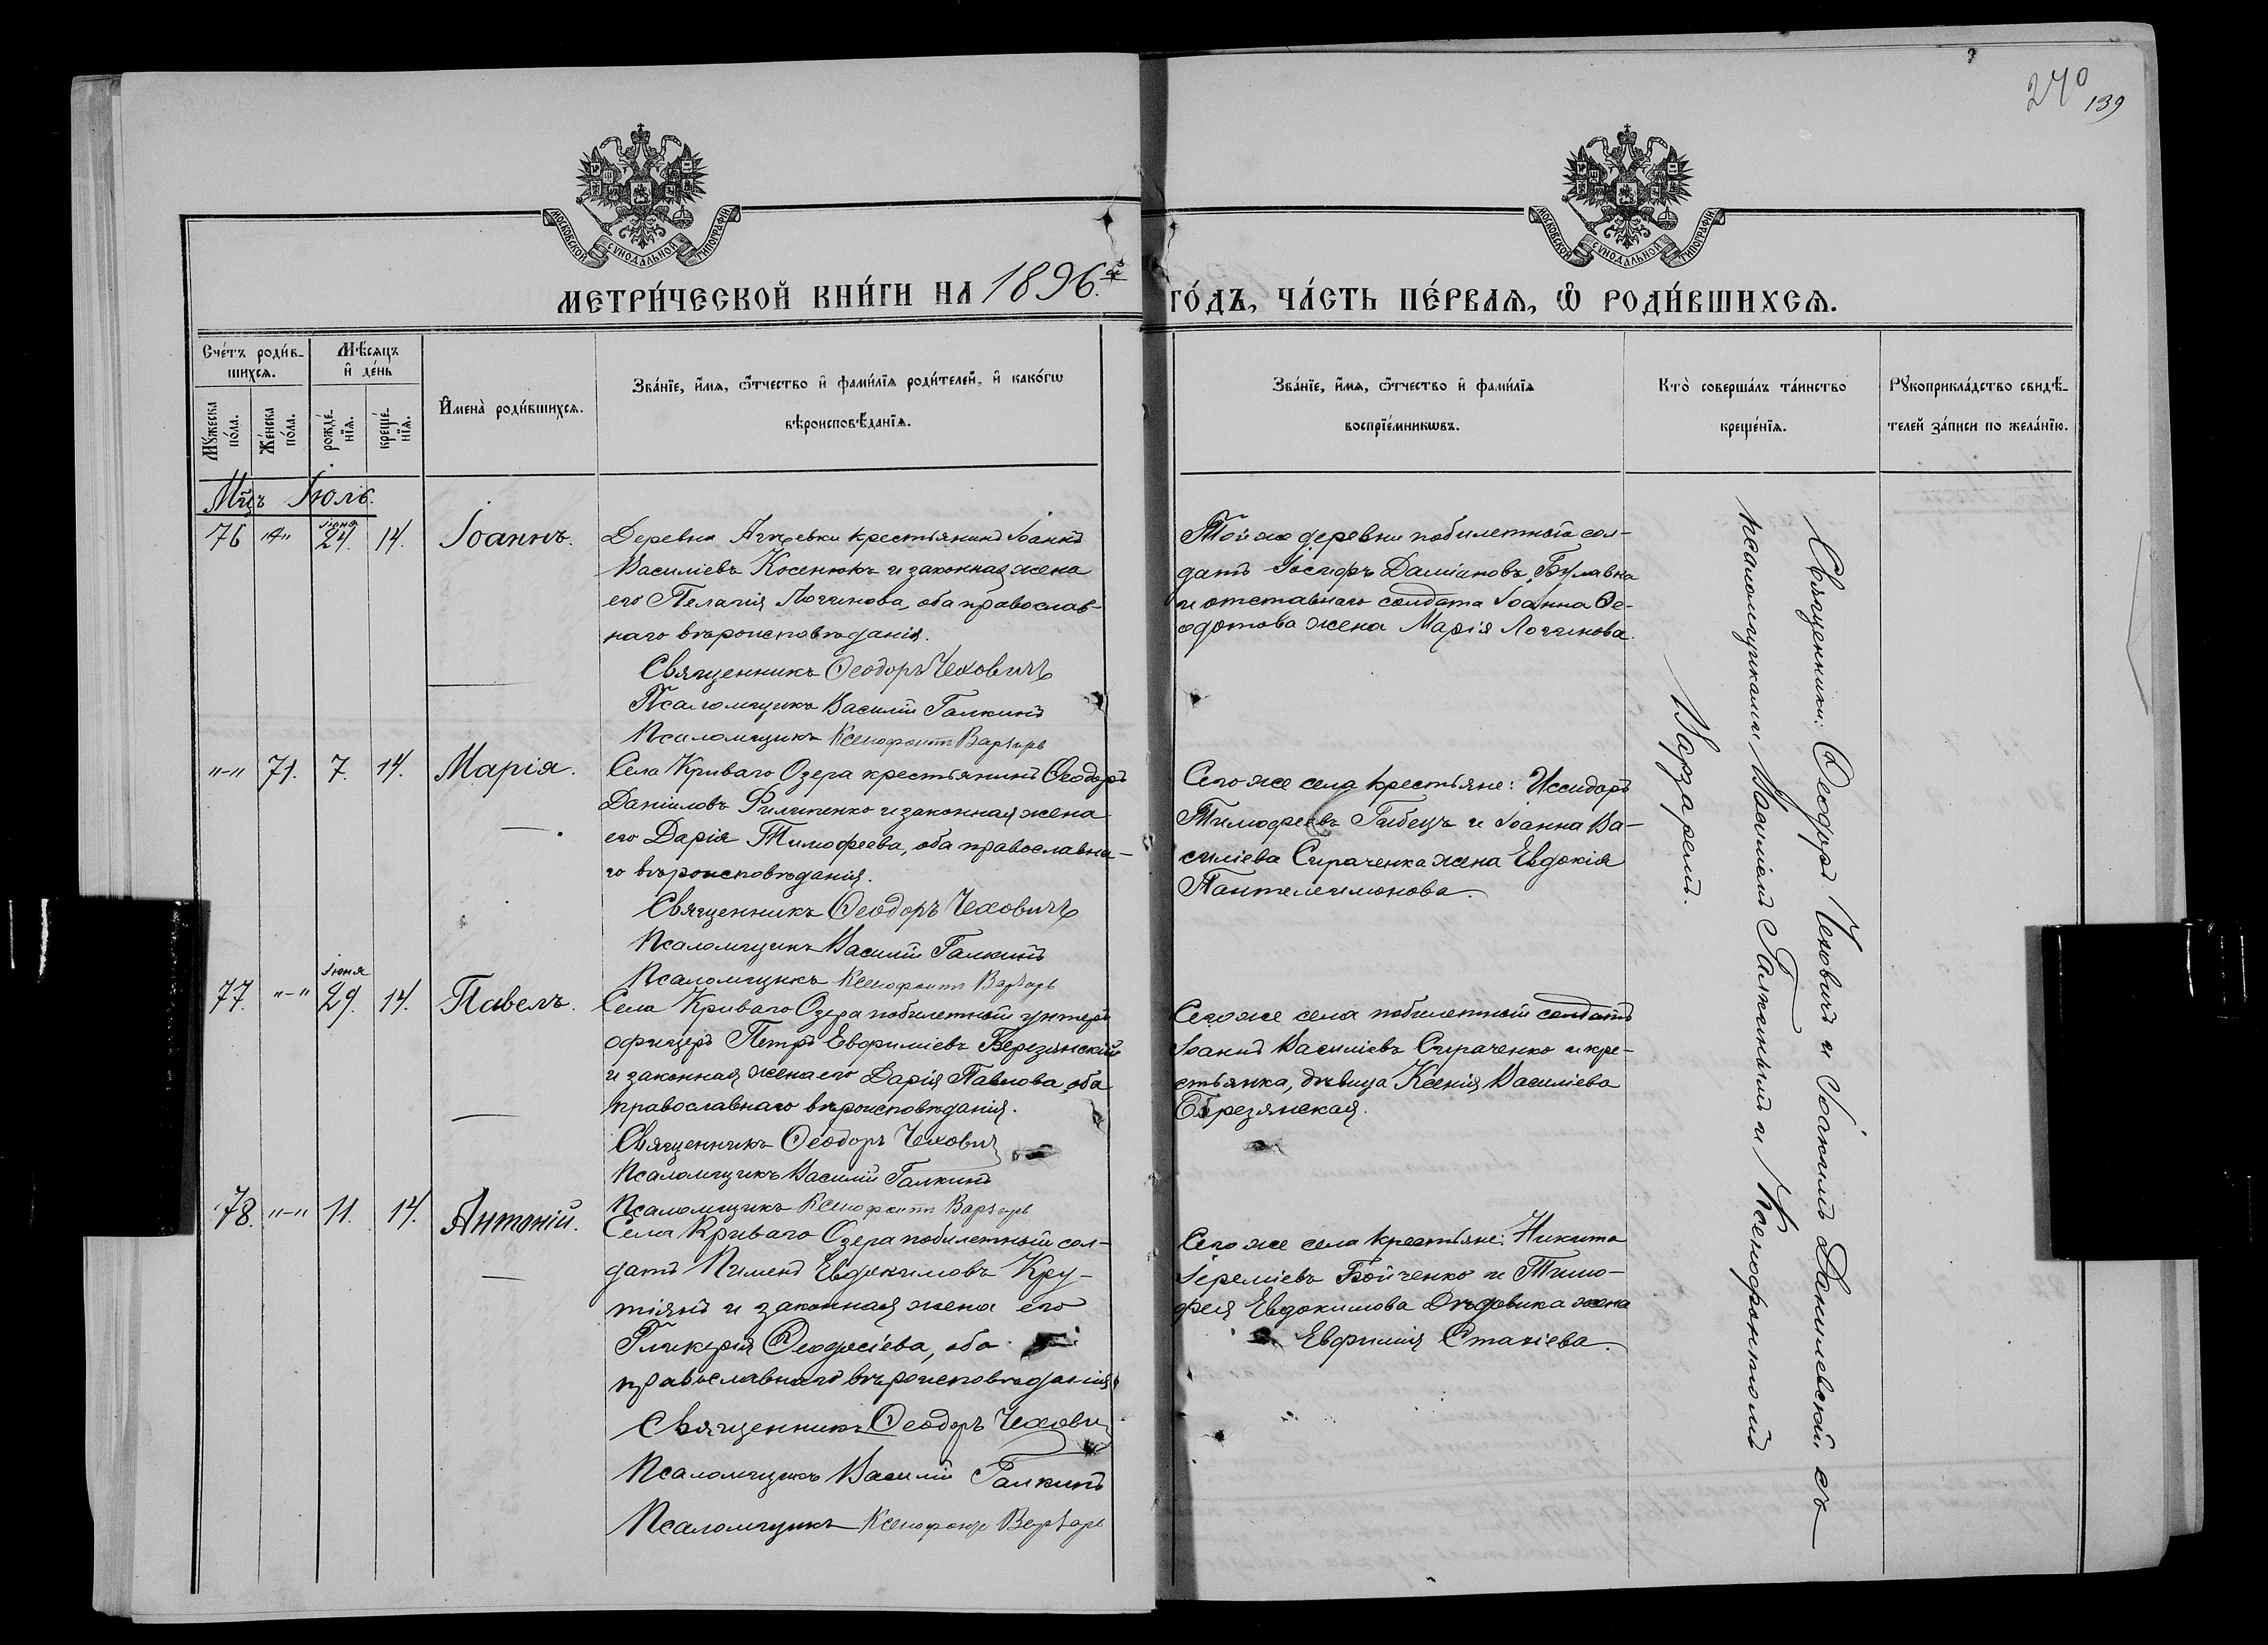 270
139
МОСКОВСКОЙ СѴНОДАЛЬНОЙ ТИПОГРАФІИ
МОСКОВСКОЙ СѴНОДАЛЬНОЙ ТИПОГРАФІИ
МЕТРИ́ЧЕСКОЙ КНИ́ГИ НА 1896.й ГО́ДЪ, ЧА́СТЬ ПЕ́РВАѦ, Ѡ РОДИ́ВШИХСѦ.
Сче́тъ роди́в-
шихсѧ.
Мꙋ́жеска по́ла.
Же́нска по́ла.
Мѣ́сяцъ
и҆ де́нь
рожде́-
нїѧ.
креще́-
нїѧ.
И҆мена̀ роди́вшихсѧ.
Зва́нїе, и҆́мѧ, ѻ҆́тчество и҆ фами́лїѧ роди́телей, и҆ како́гѡ
вѣроисповѣ́данїѧ.
Зва́нїе, и҆́мѧ, ѻ҆́тчество и҆ фами́лїѧ
воспрїе́мникѡвъ.
Кто̀ соверша́лъ та́инство
креще́нїѧ.
Рꙋкоприкла́дство свидѣ́-
телей за́писи по жела́нїю.
Мцъ Іюль.
76 "-" Іюня 24. 14. Іоаннъ.
Деревни крестьянинъ Іоаннъ
Василіевъ Косенюкъ и законная жена
его Пелагія Логгинова, оба православ-
наго вѣроисповѣданія.
Священникъ Ѳеодоръ Чеховичъ
Псаломщикъ Василій Галкинъ
Псаломщикъ Ксенофонтъ Варзарь
Той же деревни побилетный сол-
датъ Іосифъ Даміановъ Булавка
и отставнаго солдата Іоанна Ѳе-
одотова жена Марія Логгинова.
"-" 71. 7. 14. Марія.
Села Криваго Озера крестьянинъ Ѳеодоръ
Даніиловъ Филипенко и законная жена
его Дарія Тимофеева, оба православна-
го вѣроисповѣданія.
Священникъ Ѳеодоръ Чеховичъ
Псаломщикъ Василій Галкинъ
Псаломщикъ Ксенофонтъ Варзарь
Сего же села крестьяне: Исидоръ
Тимофеевъ Гибецъ и Іоанна Ва-
силіева Сираченка жена Евдокія
Пантелеимонова.
77. "-" Іюня 29. 14. Павелъ.
Села Криваго Озера побилетный унтеръ
офицеръ Петръ Евфиміевъ Березянскій
и законная жена его Дарія Павлова, оба
православнаго вѣроисповѣданія.
Священникъ Ѳеодоръ Чехович
Псаломщикъ Василій Галкинъ
Псаломщикъ Ксенофонтъ Варзарь
Сего же села побилетный солдатъ
Іоаннъ Василіевъ Сираченко и кре-
стьянка, дѣвица Ксенія Василіева
Березянская.
78. "-" 11. 14. Антоній.
Села Криваго Озера побилетный сол-
датъ Пименъ Евдокимовъ Кру-
тіянъ и законная жена его
Гликерія Ѳеодосіева, оба
православнаго вѣроисповѣданія
Священникъ Ѳеодоръ Чехович
Псаломщикъ Василій Галкинъ
Псаломщикъ Ксенофонтъ Варзарь
Сего же села крестьяне: Никита
Іереміевъ Бойченко и Тимо-
фея Евдокимова Дѣдовика жена
Евфимія Стахіева.
Священники: Ѳеодоръ Чеховичъ и Іоакимъ Данилевскій съ
псаломщиками Василіемъ Галкинымъ и Ксенофонтомъ
Варзаремъ.